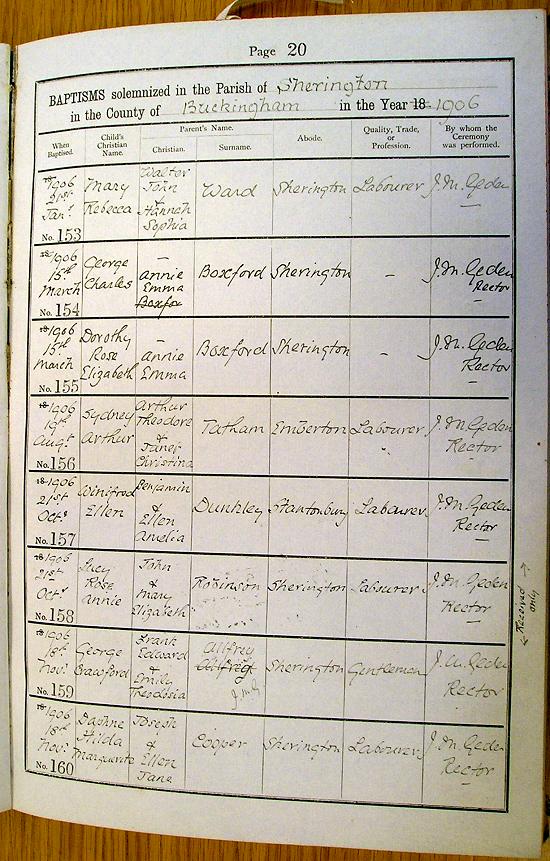 Page 20
BAPTISMS solemnized in the Parish of Sherington
in the County of Buckingham in the Year 18 1906
When Baptised.
Child's Christian Name.
Parent's Name.
Christian.
Surname.
Abode.
Quality, Trade, or Profession.
By whom the Ceremony was performed.
18 1906
21st
Jany
No. 153
Mary
Rebecca
Walter
John
&
Hannah
Sophia
Ward
Sherington
Labourer
J.M. Geden
18 1906
15th
March
No. 154
George
Charles
—
Annie
Emma
Boxfor
Boxford
Sherington
-
J.M. Geden
Rector
18 1906
15th
March
No. 155
Dorothy
Rose
Elizabeth
—
Annie
Emma
Boxford
Sherington
-
J.M. Geden
Rector
18 1906
19th
Augt
No. 156
Sydney
Arthur
Arthur
Theodore
&
Janet
Christina
Tatham
Emberton
Labourer
J.M. Geden
Rector
18 1906
21st
Octr
No. 157
Winifred
Ellen
Benjamin
&
Ellen
Amelia
Dunkley
Stantonbury
Labourer
J.M. Geden
Rector
18 1906
21st
Octr
No. 158
Lucy
Rose
Annie
John
&
Mary
Elizabeth
Robinson
Sherington
Labourer
J.M. Geden
Rector
Received
only
18 1906
18th
Novr
No. 159
George
Crawford
Frank
Edward
&
Emily
Theodosia
Allfrey
J.M.G
Sherington
Gentleman
J.M. Geden
Rector
18 1906
18th
Novr
No. 160
Daphne
Hilda
Marguerite
Joseph
&
Ellen
Jane
Cooper
Sherington
Labourer
J.M. Geden
Rector